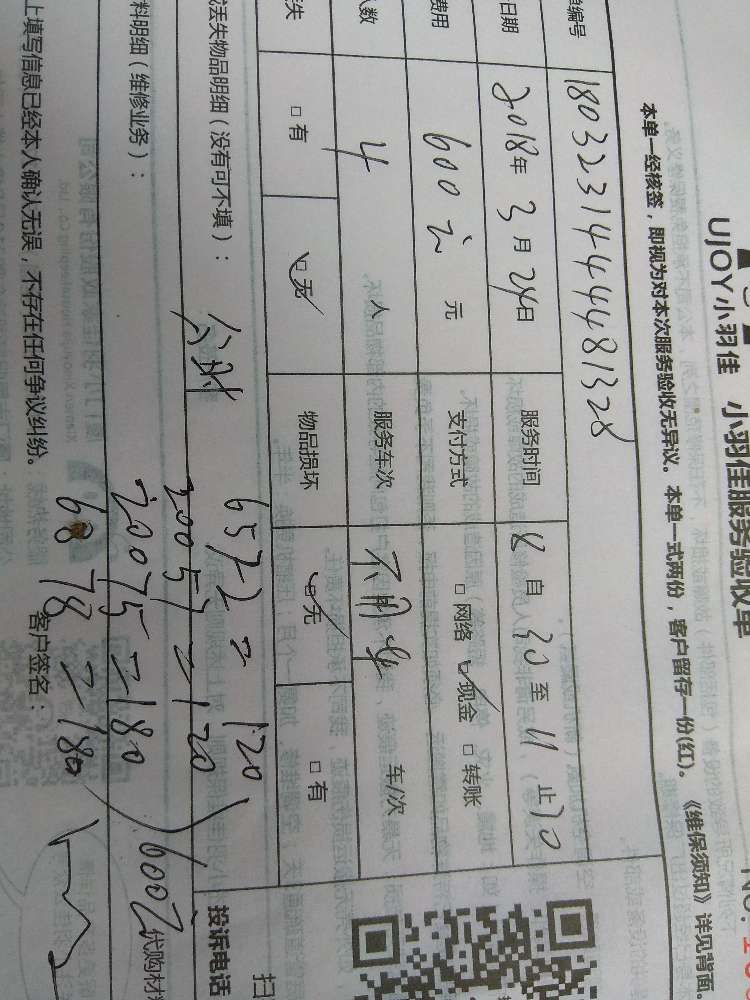 UJOY小羽佳 小羽佳服务验收单
本单一经核签，即视为对本次服务验收无异议。本单一式两份，客户留存一份(红)。《维保须知》详见背面
单编号 1803231444481328
日期 2018年3月24日 服务时间 8自30至11止10
费用 600元 元 支付方式 □网络 ☑现金 □转账
人数 4 人 服务车次 不用车 车/次
失 □有 ☑无 物品损坏 ☑无 □有
丢失物品明细（没有可不填）：
分时 6572=120
20057=120
料明细（维修业务）： 20075=180
6878=180
600元
上填写信息已经本人确认无误，不存在任何争议纠纷。 客户签名：
投诉电话
优购材
扫